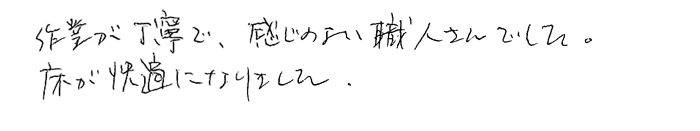 作業が丁寧で、感じのよい職人さんでした。
床が快適になりました．